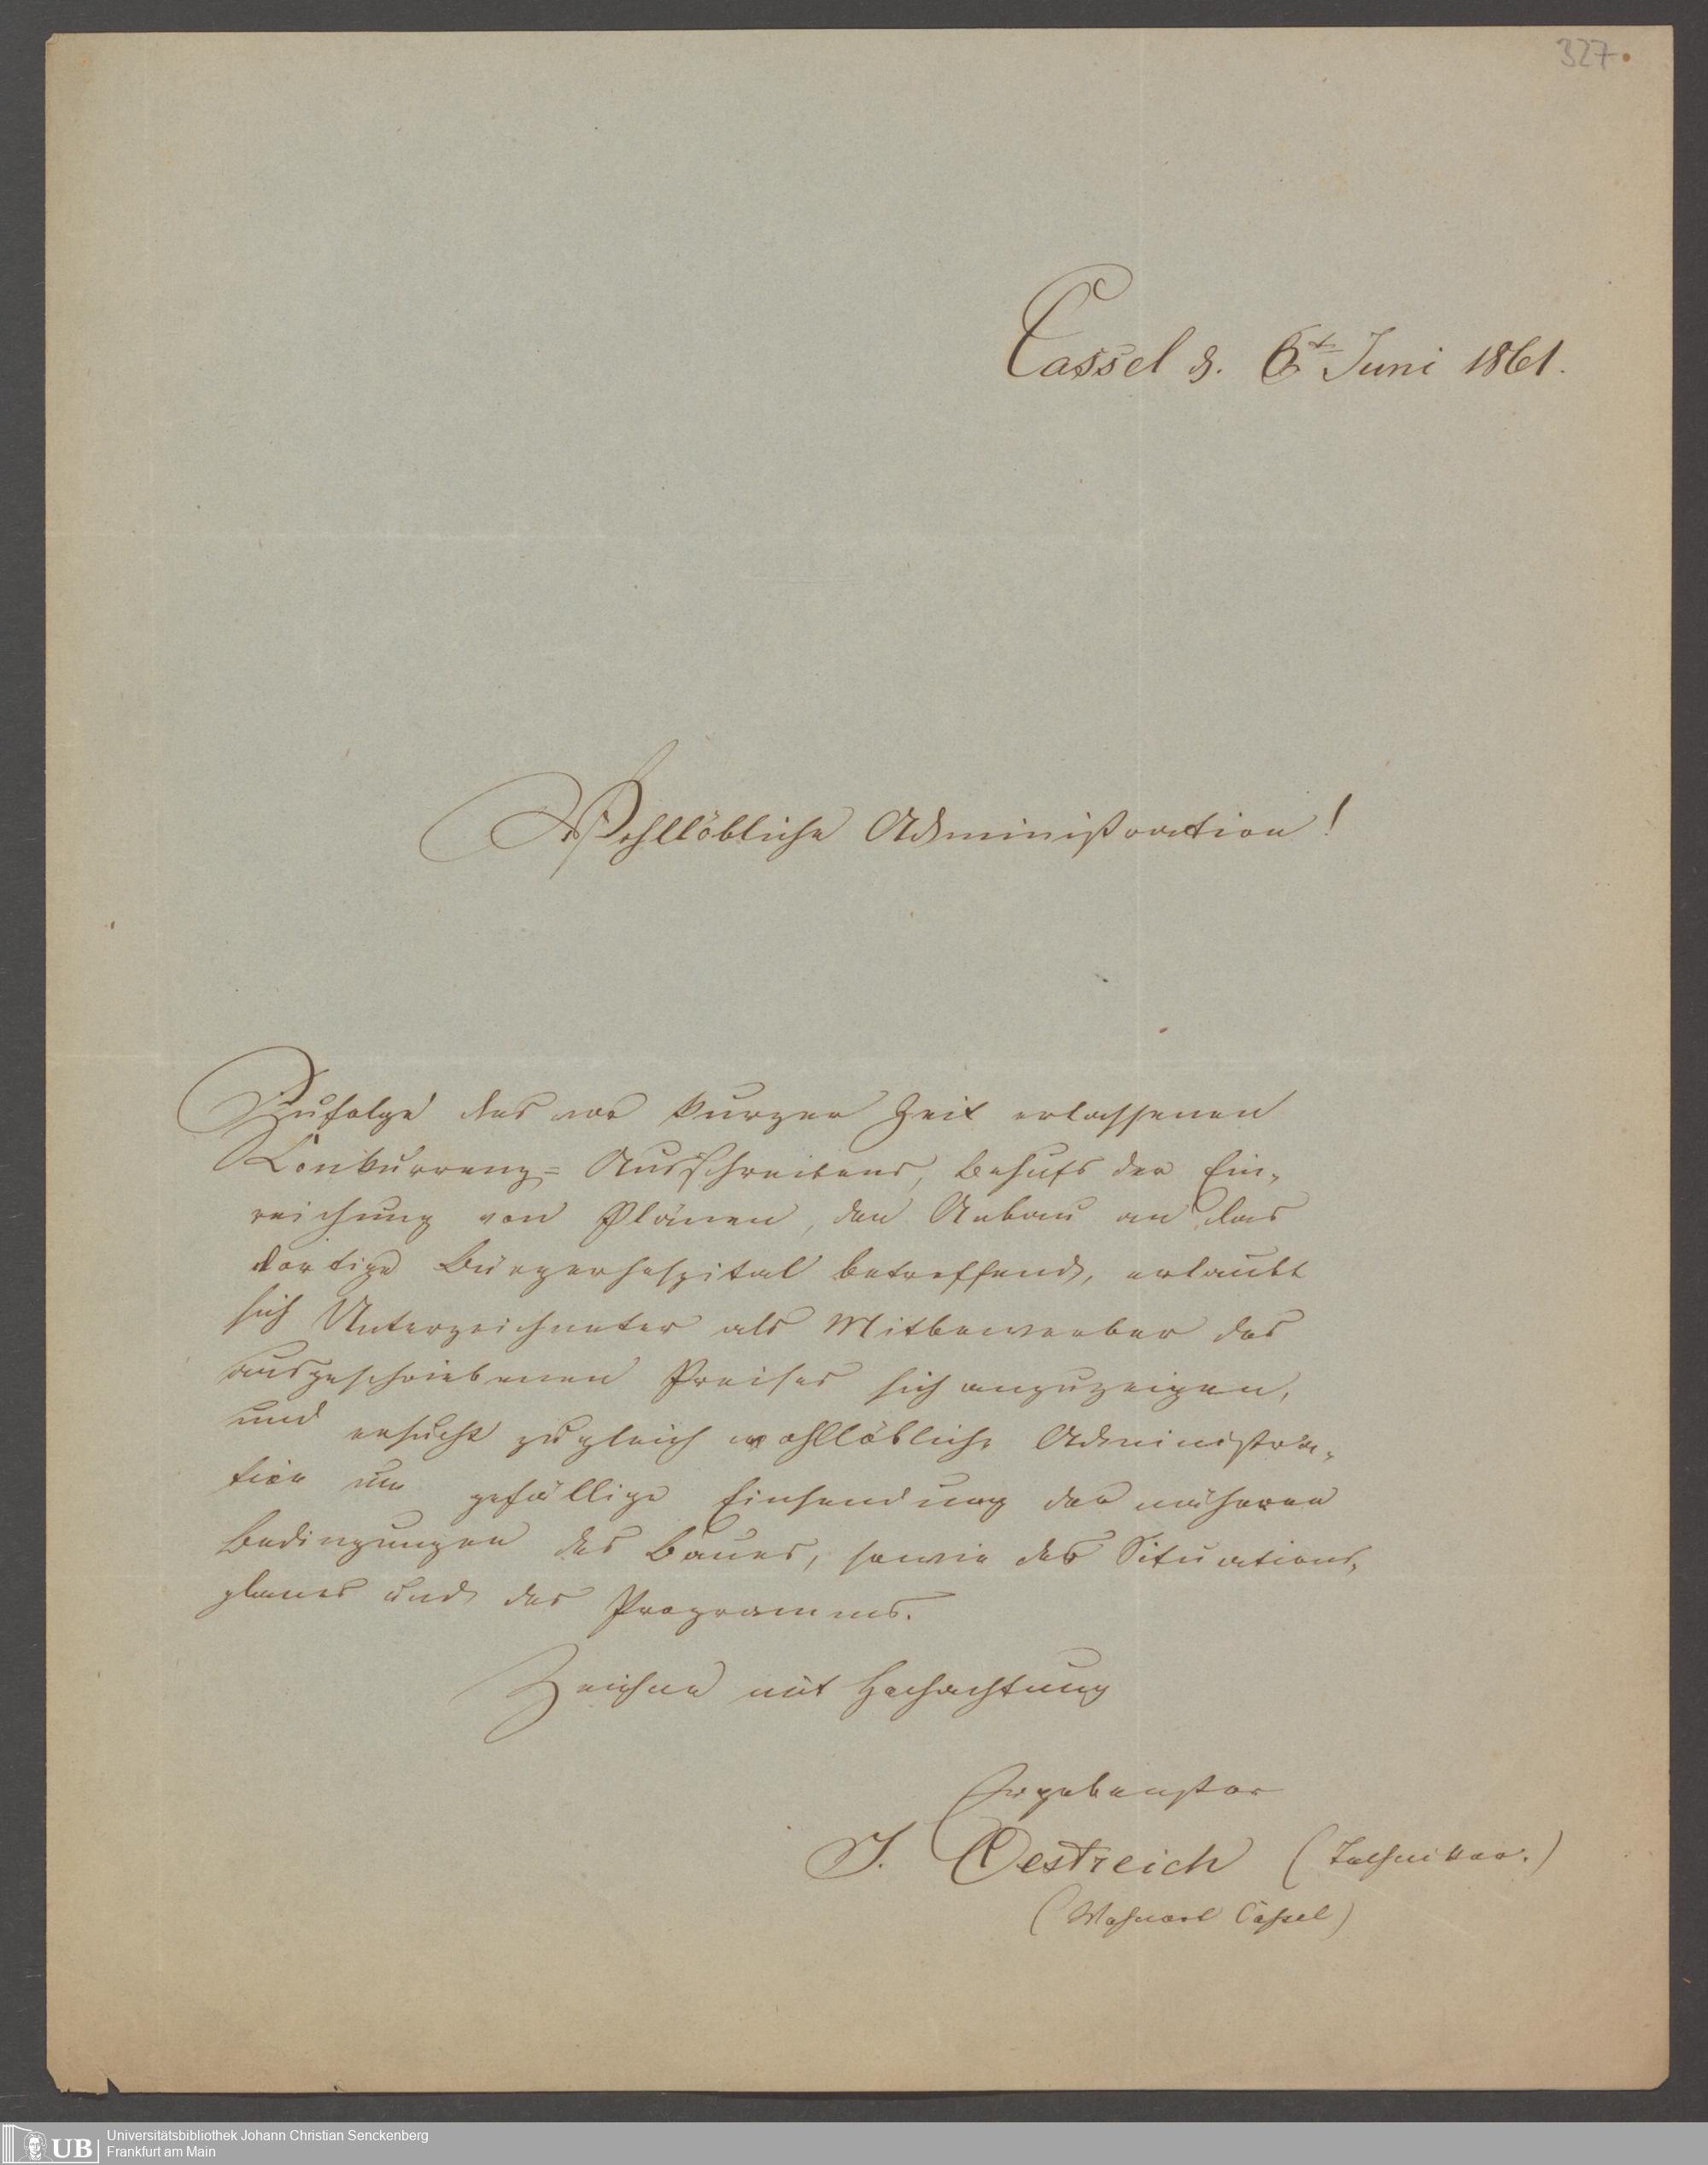 327.
Cassel d. 6t Juni 1861.
Wohllöbliche Administration!
Zufolge des vor kurzer Zeit erlassenen
Konkurrenz- Ausschreibens, behufs der Ein-
reichung von Plänen, den Anbau an das
dortige Bürgerhospital betreffend, erlaubt
sich Unterzeichneter als Mitbewerber des
ausgeschriebenen Preises sich anzuzeigen,
und ersucht zugleich wohllöbliche Administra-
tion um gefällige Einsendung der näheren
Bedingungen des Baues, sowie des Situations-
planes und des Programms.
Zeichne mit Hochachtung
Ergebenster
J. Oestreich (Techniker.)
(Cassel)
UB
Universitätsbibliothek Johann Christian Senckenberg
Frankfurt am Main